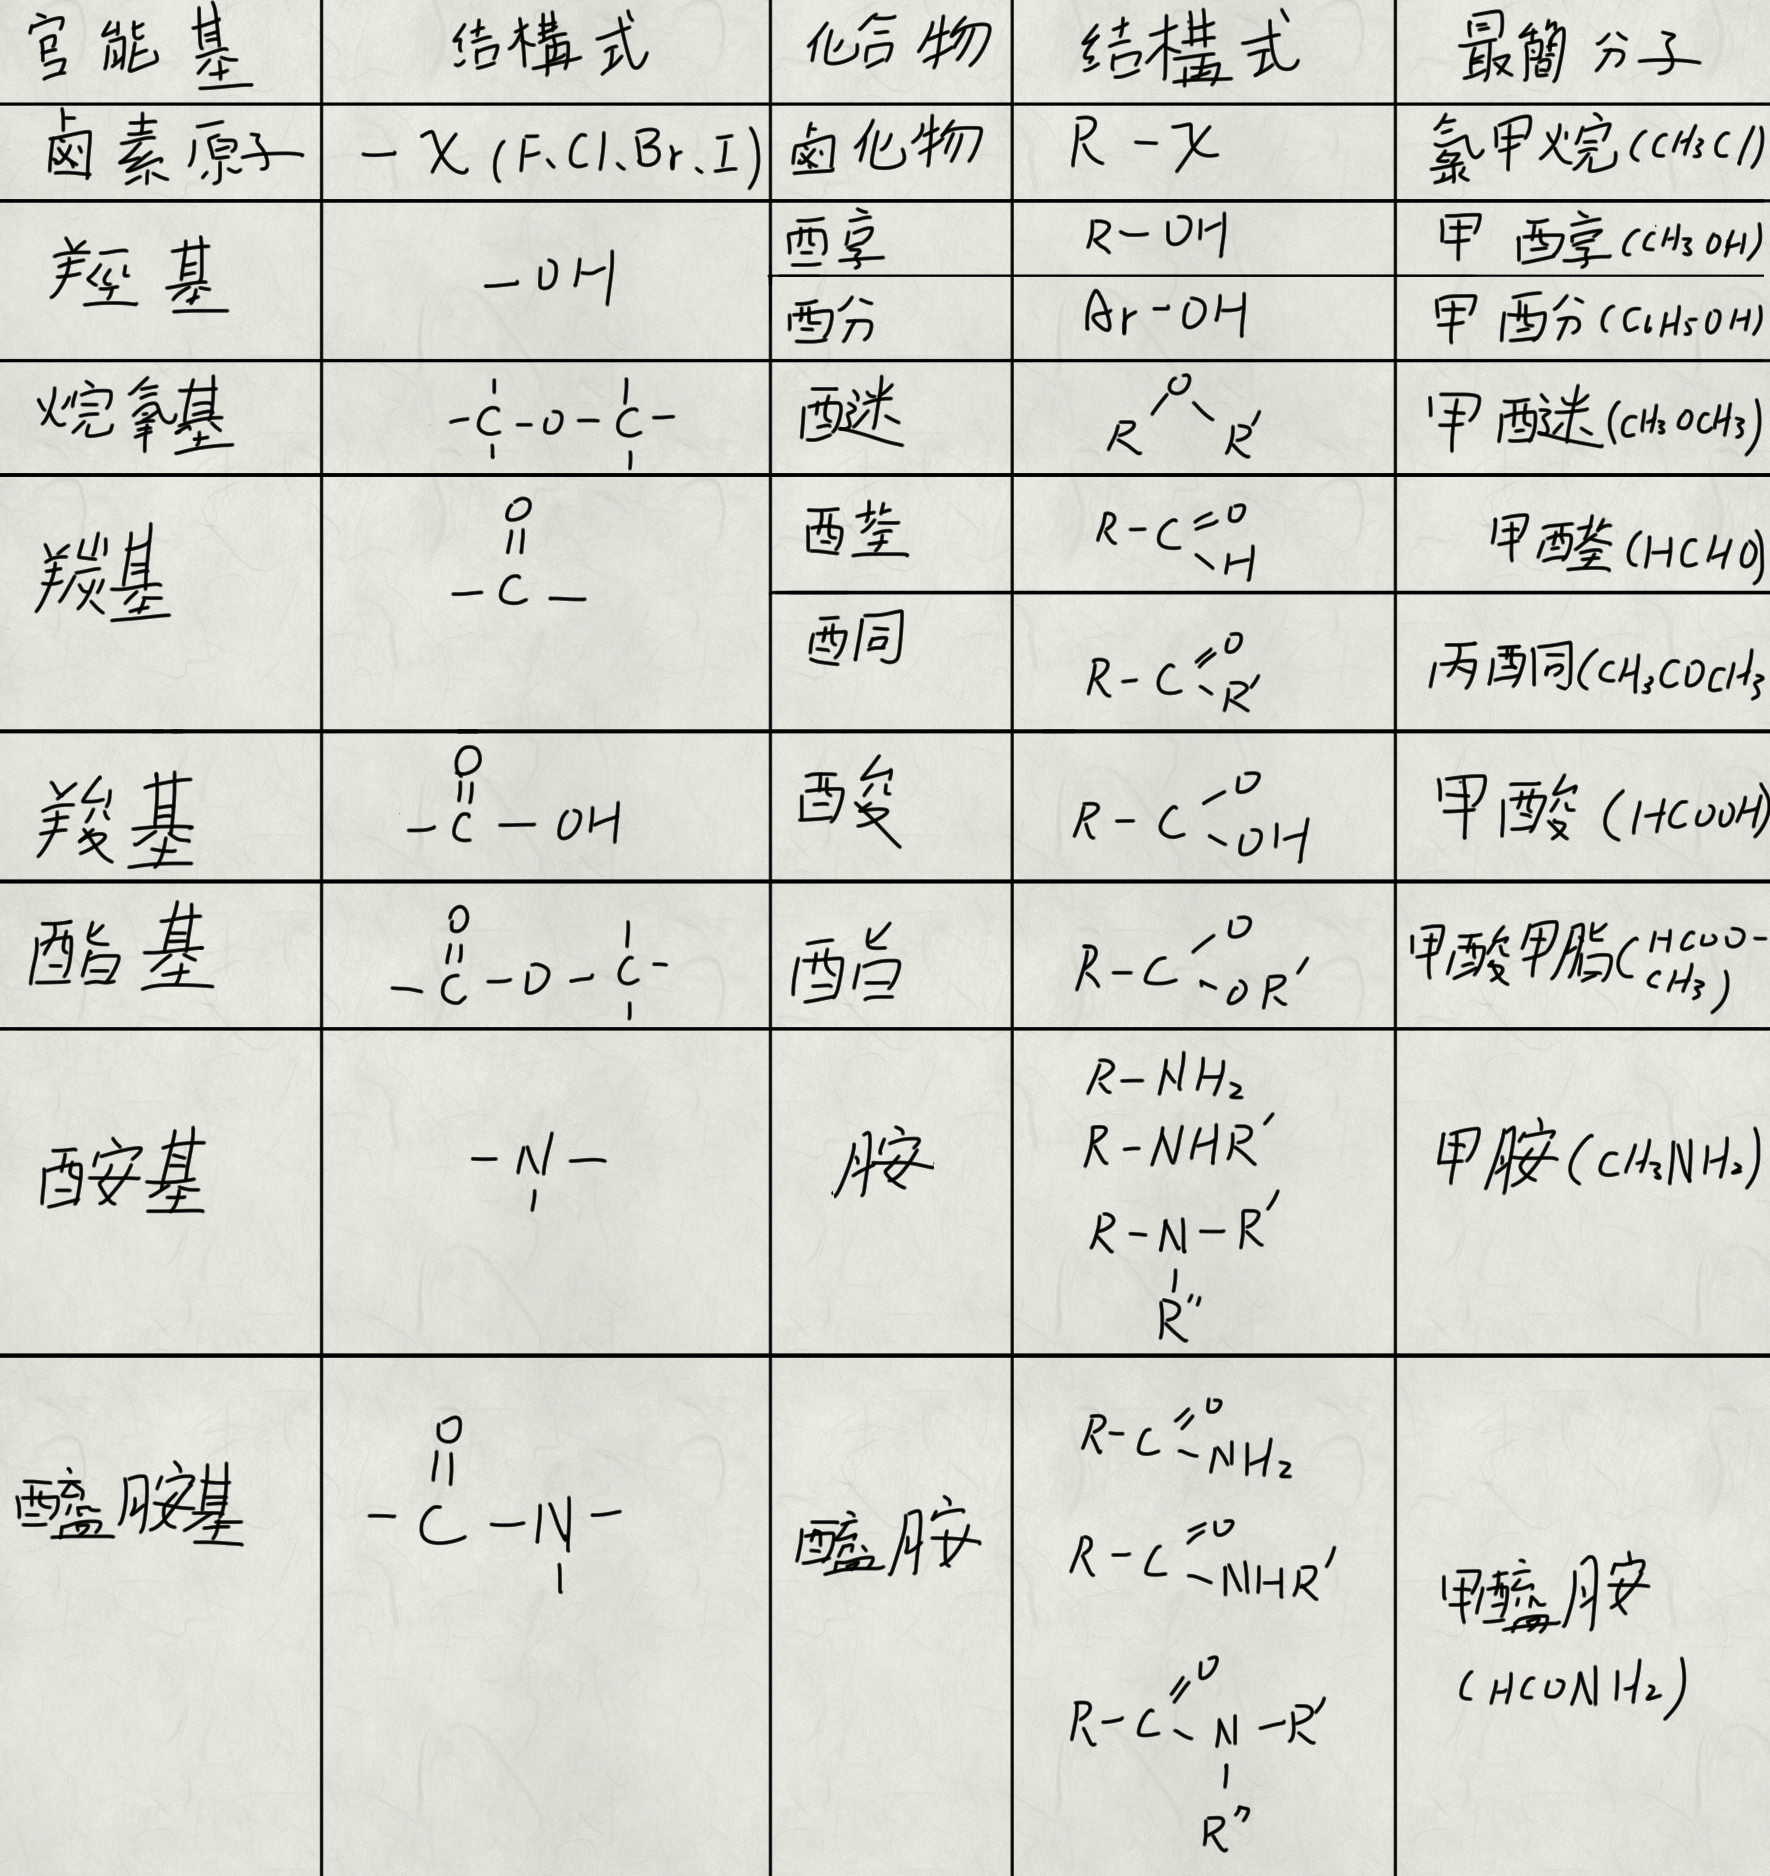 官能基 结構式 化合物 结構式 最簡分子
鹵素原子 -X (F、Cl、Br、I) 鹵化物 R-X 氯甲烷(CH3Cl)
羥基 -OH 醇 R-OH 甲醇(CH3OH)
酚 Ar-OH 甲酚(C6H5OH)
烷氧基 -C-O-C- 醚 R O R' 甲醚(CH3OCH3)
羰基 O
-C- 醛 R-C=O
H 甲醛(HCHO)
酮 R-C=O
R' 丙酮(CH3COCH3
羧基 O
-C-OH 酸 R-C-O
OH 甲酸(HCOOH)
酯基 O
-C-O-C- 酯 R-C-O
OR' 甲酸甲脂(HCOO-
CH3)
-N- 胺 R-NH2
R-NHR' 甲胺(CH3NH2)
R-N-R'
R"
O
-C-N- R-C=O
NH2
R-C=O
NHR'
(HCONH2)
R-C=O
N-R'
R"